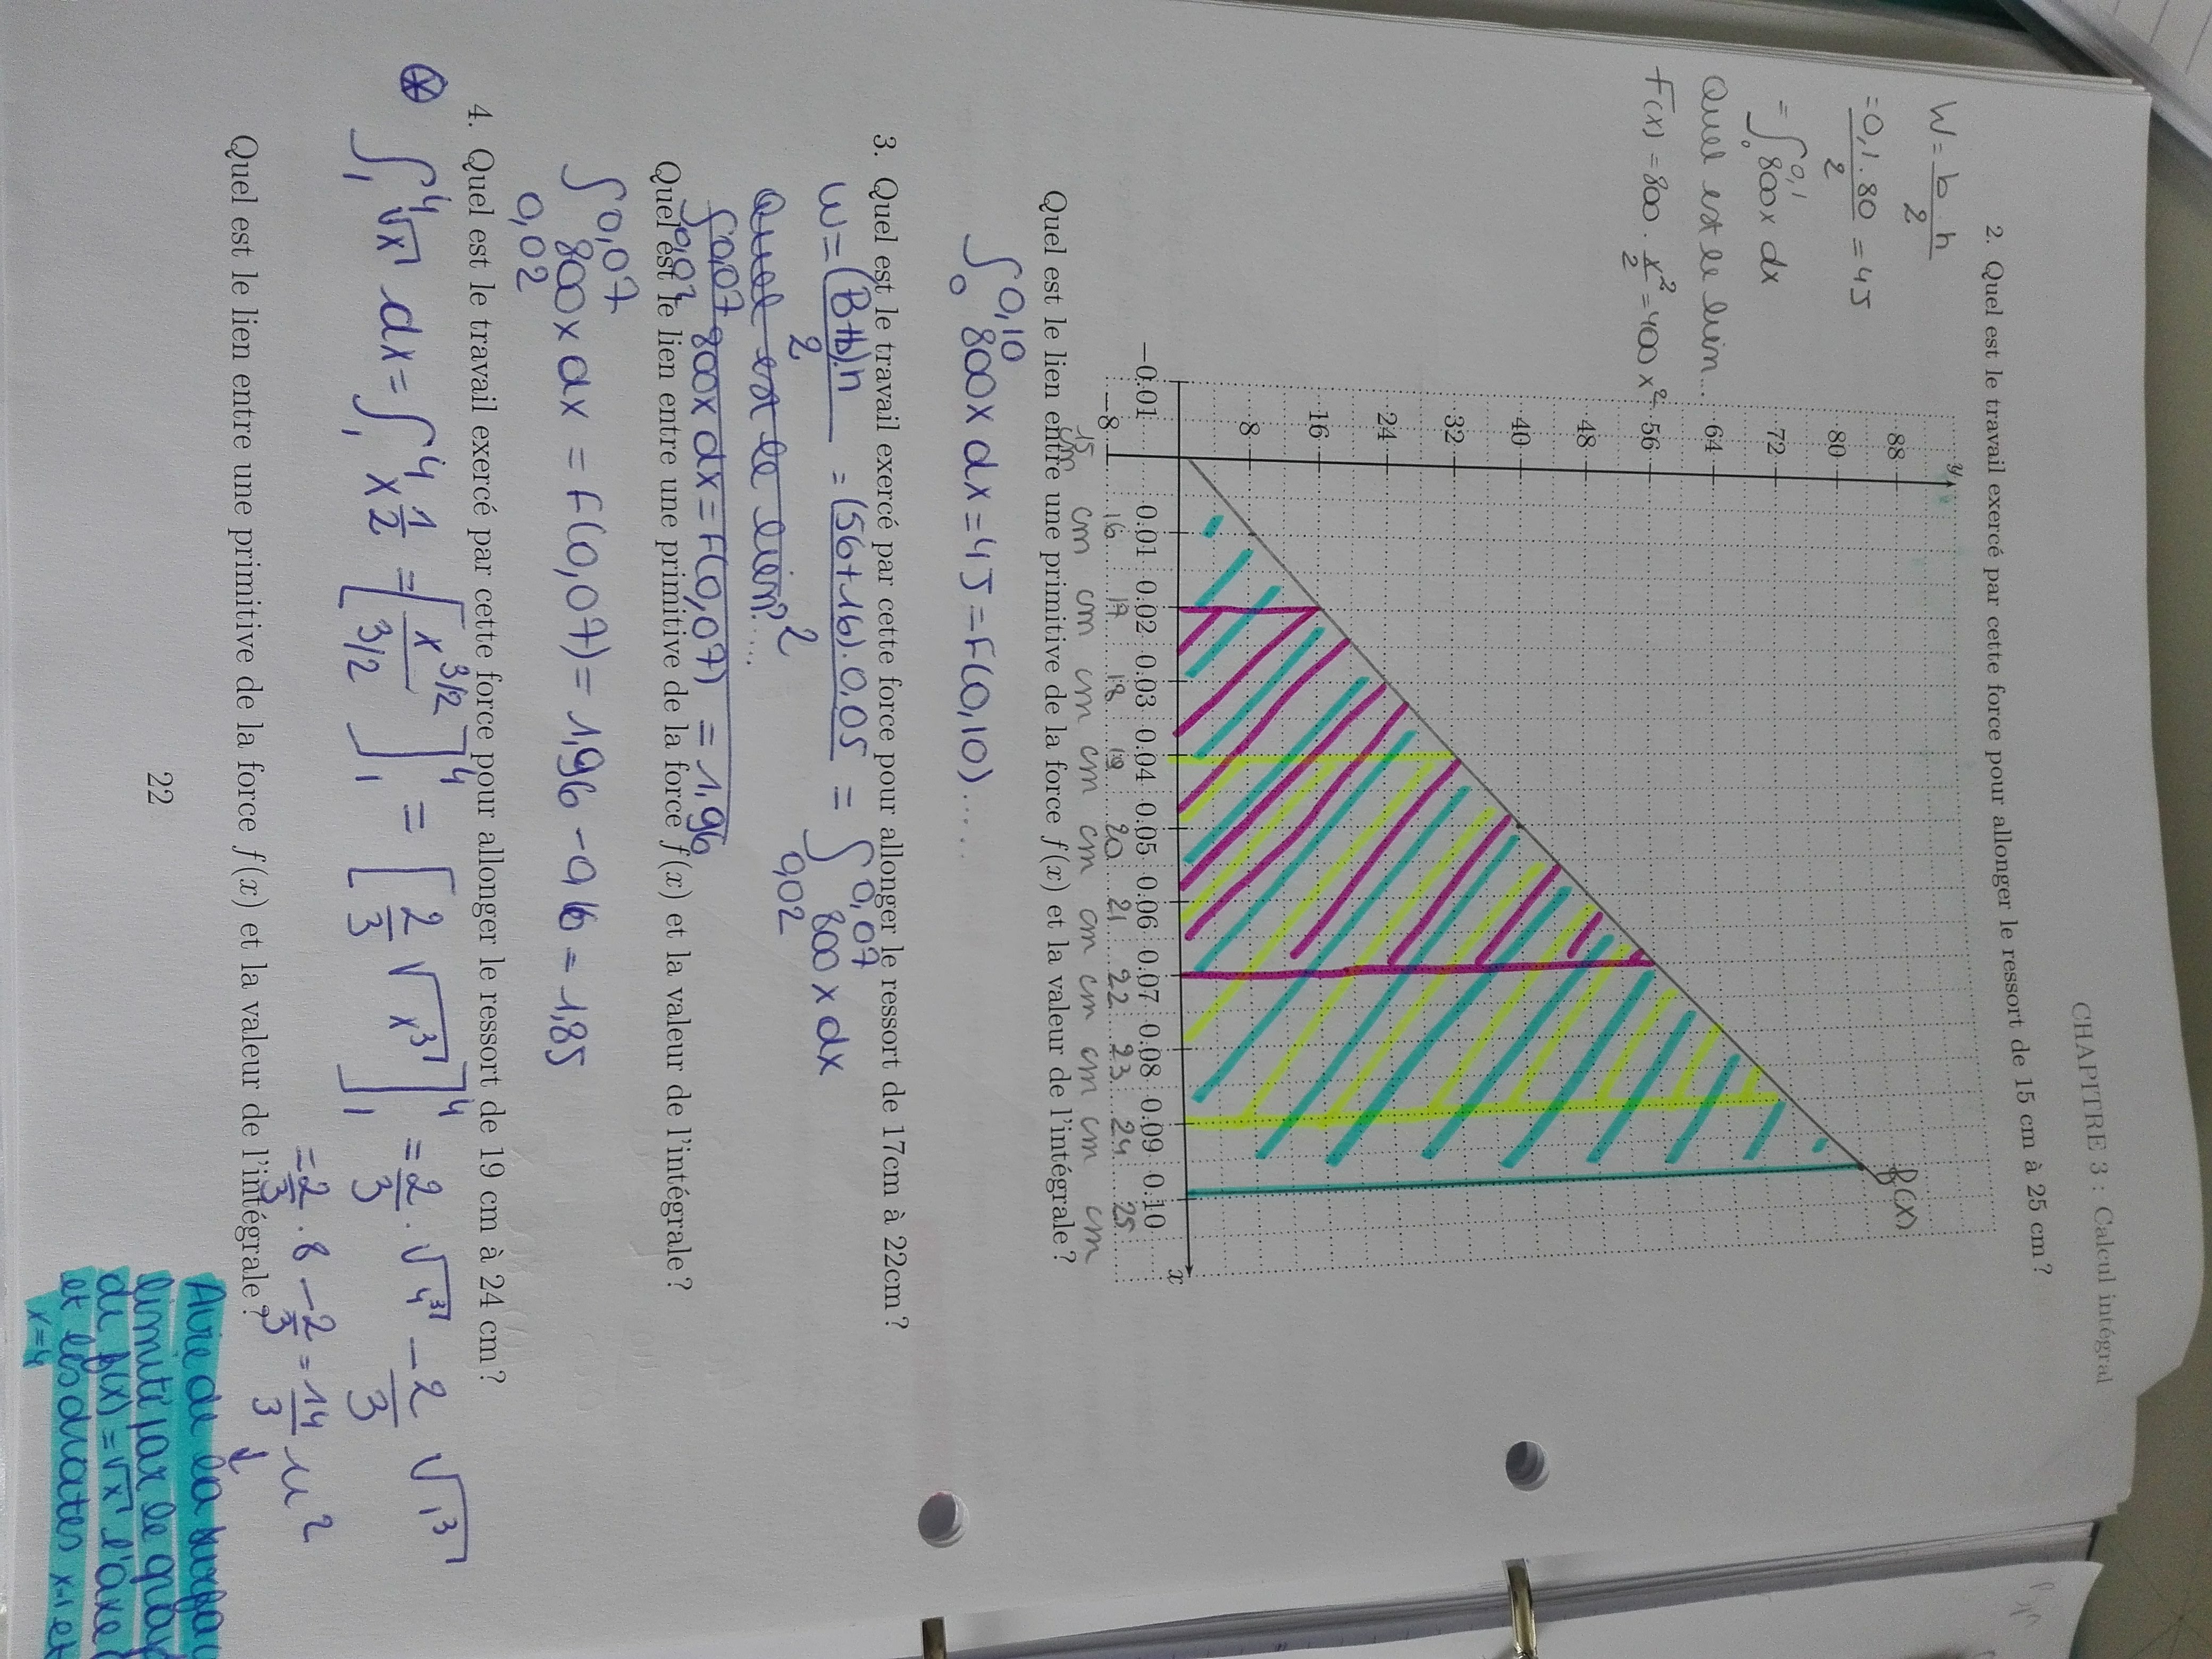 CHAPITRE 3 : Calcul intégral
2. Quel est le travail exercé par cette force pour allonger le ressort de 15 cm à 25 cm ?
W = b h
2
= 0,1 . 80 = 4J
2
= ∫₀^0,1 800x dx
Quel est le lien...
F(x) = 800 . x²/2 = 400 x²
y
88
80
72
64
56
48
40
32
24
16
8
-8
f(x)
x
-0.01 0.01 0.02 0.03 0.04 0.05 0.06 0.07 0.08 0.09 0.10
15 16 17 18 19 20 21 22 23 24 25
cm cm cm cm cm cm cm cm cm cm cm
Quel est le lien entre une primitive de la force f(x) et la valeur de l'intégrale ?
∫₀^0,10 800x dx = 4J = F(0,10)....
3. Quel est le travail exercé par cette force pour allonger le ressort de 17cm à 22cm ?
W = (B+b).h / 2 = (56+16).0,05 / 2 = ∫0,02^0,07 800x dx
Quel est le lien?....
∫0,02^0,07 800x dx = F(0,07) = 1,96
Quel est le lien entre une primitive de la force f(x) et la valeur de l'intégrale ?
∫0,02^0,07 800x dx = F(0,07) = 1,96 - 0,16 = 1,8J
4. Quel est le travail exercé par cette force pour allonger le ressort de 19 cm à 24 cm ?
∫₁⁴ √x dx = ∫₁⁴ x^1/2 = [x^3/2 / 3/2]₁⁴ = [2/3 √x³]₁⁴ = 2/3 . √4³ - 2/3 √1³
= 2/3 . 8 - 2/3 = 14/3 u²
Quel est le lien entre une primitive de la force f(x) et la valeur de l'intégrale ?
Aire de la
limité par le
de f(x) = √x l'axe
et les droites x=1 et
x=4
22